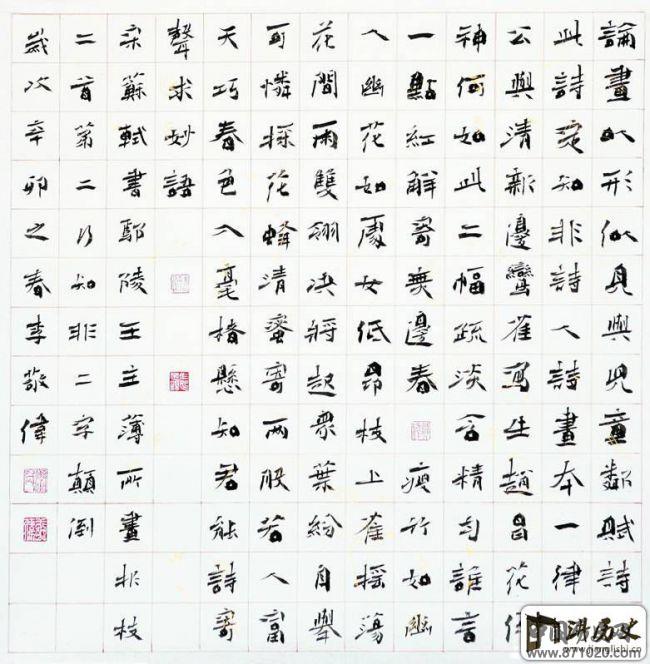 論畫以形似見與兒童鄰賦詩
此詩定知非詩人詩畫本一律
公與清新邊鸞雀寫生趙昌花
神何如此二幅疏淡含精勻誰言
一點紅解寄無邊春瘦竹如幽
人幽花如處女低昂枝上雀搖蕩
花間雨雙翎決將起眾葉紛自舉
可憐採花蜂清蜜寄兩股若人富
天巧春色入毫楮懸知君能詩寄
聲求妙語
宋蘇軾書鄢陵王主薄所畫折枝
二首第二行知非二字顛倒
歲次辛卯之春李敬偉
历史
www.871020.com